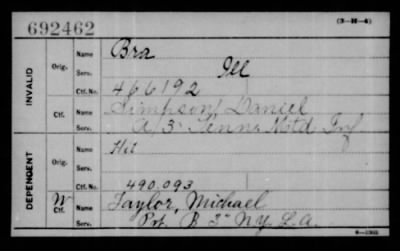 692462
(3-H-4)
INVALID
Orig.
Name
Bra
Serv.
Ill
Ctf. No.
466192
Ctf.
Name
Simpson, Daniel
Serv.
A/3 Tenn. Mtd Inf
DEPENDENT
Orig.
Name
Hit
Serv.
Ctf. No.
490.093
W
Ctf.
Name
Taylor, Michael
Serv.
Pvt. B 3" N.Y. L.A.
6-1302